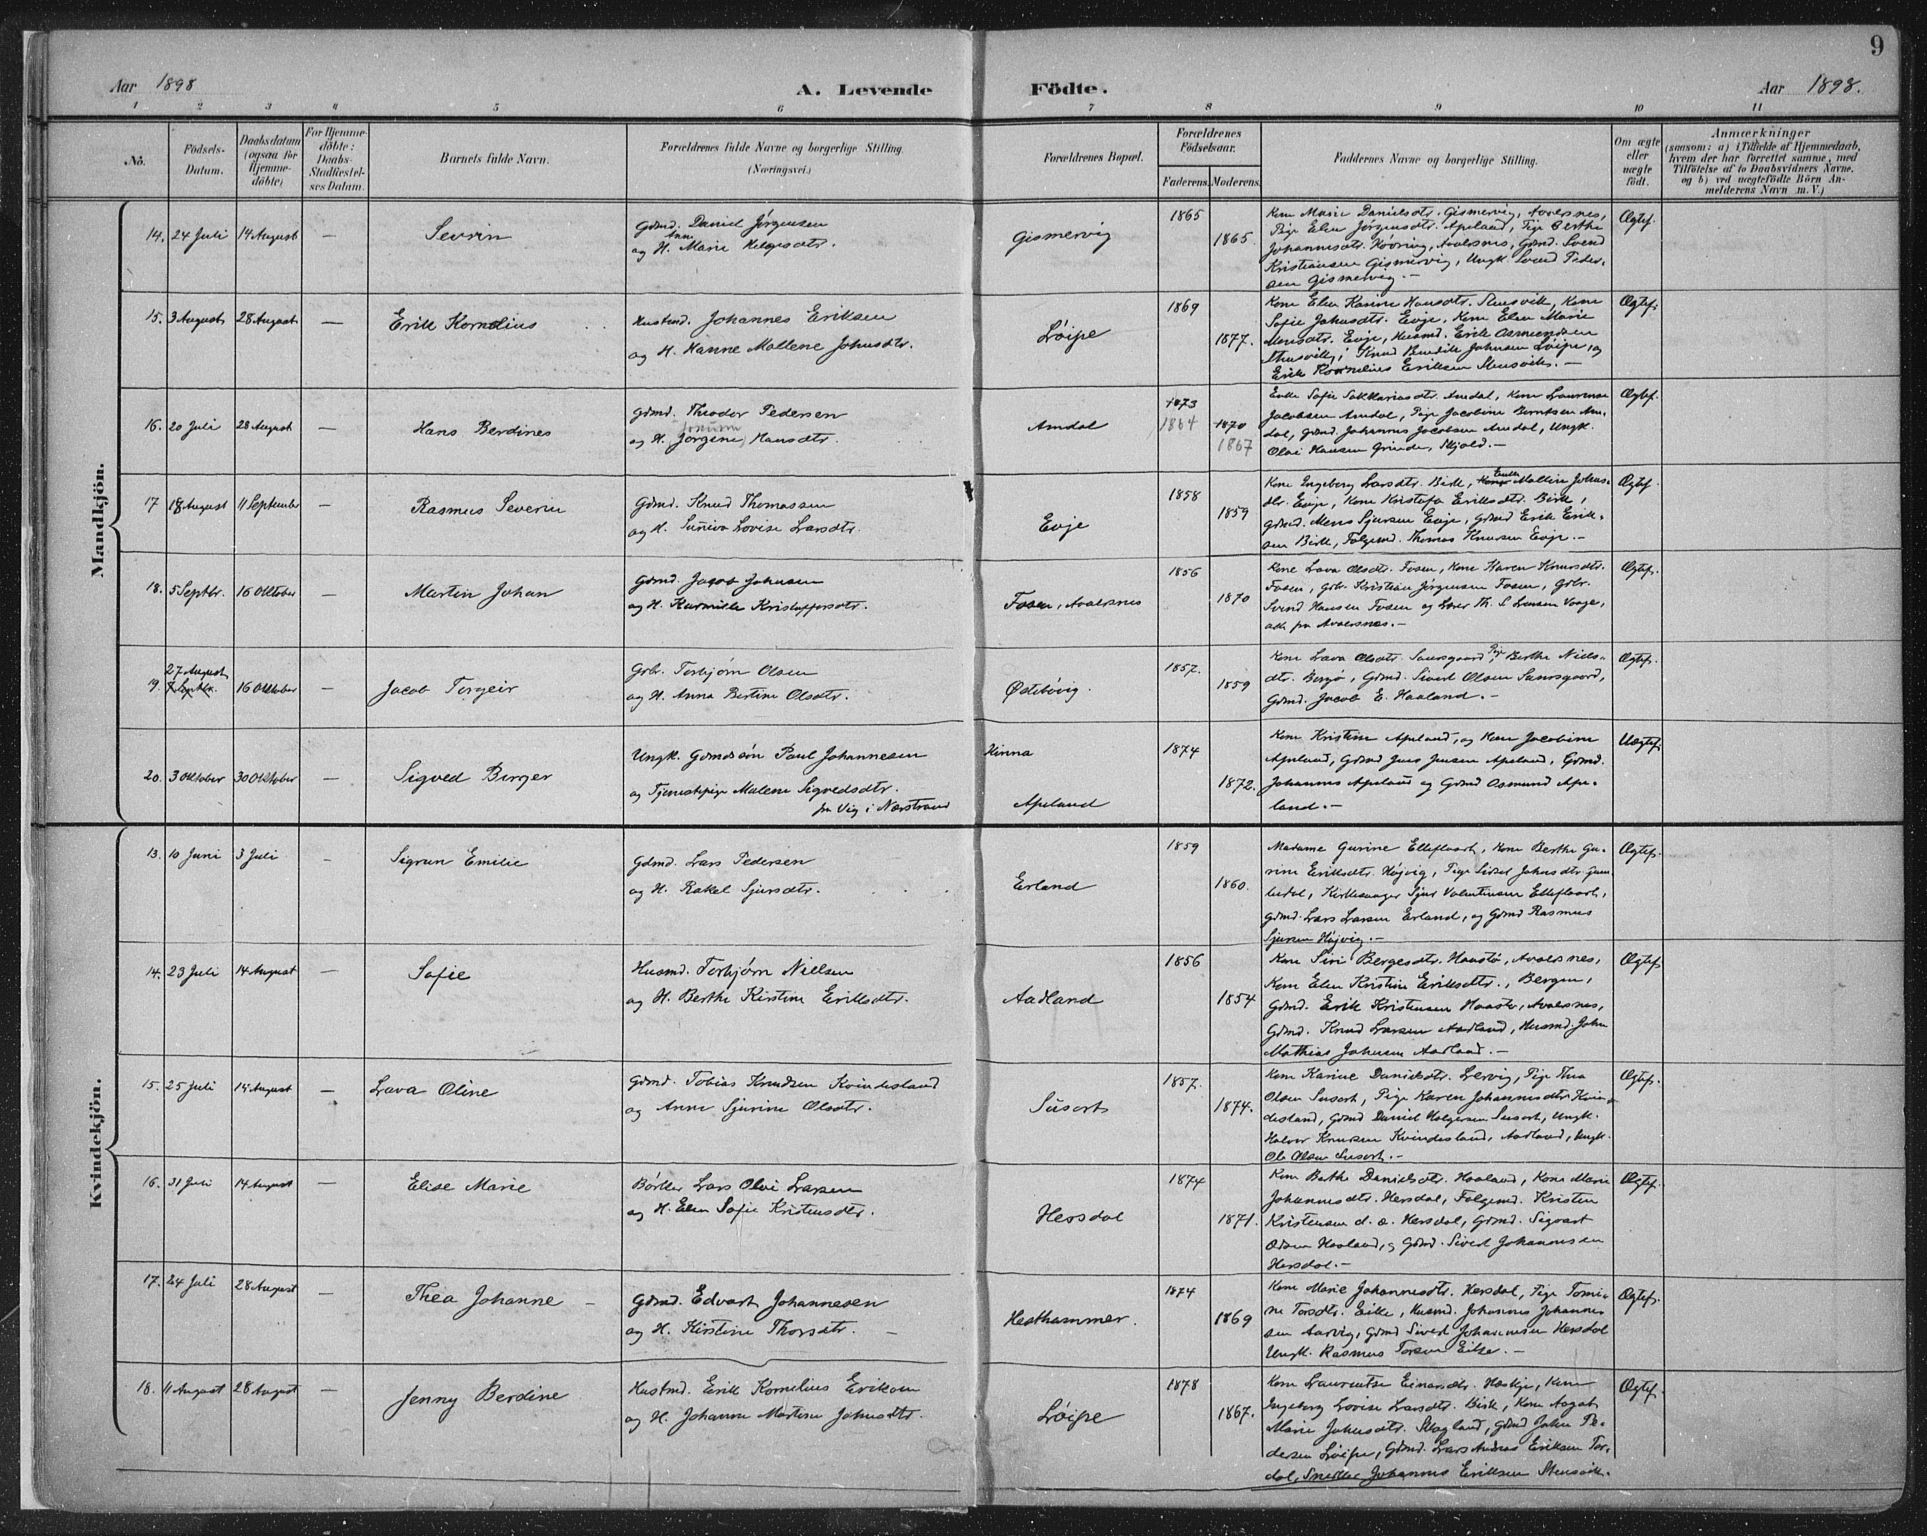 9
Aar 1898 A. Levende Födte. Aar 1898.
1 2 3 4 5 6 7 8 9 10 11
No.
Födsels-
Datum.
Daabsdatum
(ogsaa for
Hjemme-
döbte)
For Hjemme-
döbte:
Daabs-
Stadfæstel-
ses Datum.
Barnets fulde Navn.
Forældrenes fulde Navne og borgerlige Stilling.
(Næringsvei.)
Forældrenes Bopæl.
Forældrenes
Födselsaar.
Faderens. Moderens.
Faddernes Navne og borgerlige Stilling.
Om ægte
eller
uægte
födt.
Anmærkninger
(saasom: a) i Tilfælde af Hjemmedaab,
hvem der har forrettet samme, med
Tilföielse af to Daabsvidners Navne.
og b) ved uægtefödte Börn An-
melderens Navn m. V.)
Mandkjön.
14. 24 Juli 14 August — Sevrin
Gdmd. Daniel Jørgensen
og H. Anne Marie Helgesdtr.
Gismervig
1865
1865.
Kone Marie Danielsdtr. Gismervig, Avalsnes,
Pige Elen Jørgensdtr. Apeland, Pige Berthe
Johannesdtr. Kövring, Avalsnes, Gdmd. Svend
Kristiansen Gismervig, Ungk. Svend Peder-
sen Gismervig. —
Ægtef.
15. 3 August 28 August — Erik Kornelius
Husmd. Johannes Eriksen
og H. Hanne Mallene Johnsdtr.
Løipe
1869
1877.
Kone Elen Karine Hansdtr. Stensvik, Kone
Sofie Johnsdtr. Evje, Kone Elen Marie
Monsdtr. Evje, Husmd. Erik Osmundsen
Stensvik, Knud Benedik Johnsen Løipe, og
Erik Kornelius Eriksen Stensvik. —
Ægtef.
16. 20 Juli 28 August — Hans Berdines
Gdmd. Theodor Pedersen
og H. Jørgine Hansdtr.
Amdal
1873
1864
1870
1867
Enke Sofie Sakkariasdtr. Amdal, Kone Laurense
Jacobsen Amdal, Pige Jacobine Berntsen Am-
dal, Gdmd. Johannes Jacobsen Amdal, Ungk.
Olai Hansen Grinde, Skjold. —
Ægtef.
17 18 August 11 September — Rasmus Severin
Gdmd. Knud Thomassen
og H. Suneva Lovise Larsdtr.
Evje
1858
1859
Kone Ingeborg Larsdtr. Birk, Enke Mallin Johns-
dtr. Evje, Kone Kristofa Eriksdtr. Birk,
Gdmd. Mons Sjursen Evje, Gdmd Erik Erik-
sen Birk, Folgemd. Thomas Knutsen Evje. —
Ægtef.
18. 5 Septbr. 16 Oktober — Martin Johan
Gdmd. Jacob Johnsen
og H. Karmille Kristoffersdtr.
Fosen, Avalsnes
1856
1870
Kone Lava Olsdtr. Fosen, Kone Karen Knutsdtr.
Fosen, Grb. Kristian Jørgensen Fosen, Grbr.
Svend Hansen Fosen og Lærer Th. S. Vaage,
alle fra Avalsnes. —
Ægtef.
19. 27 August 7 Septbr. 16 Oktober — Jacob Torgeir
Grb. Torbjørn Olsen
og H. Anna Bertine Olsdtr.
Østebövig.
1857.
1859
Kone Lava Olsdtr. Sunsgaard, Pige Berthe Niels-
dtr. Borgø, Gdmd. Sivert Olsen Sunsgaard,
Gdmd. Jacob E. Haaland. —
Ægtef.
20. 3 Oktober 30 Oktober — Sigved Birger
Ungk. Gdmdsøn Paul Johannesen
og Tjenestepige Malene Sigvedsdtr.
fra Vig i Nærstrand
Kinna
Apeland
1874
1872.
Kone Kristine Apeland, og Kone Jacobine
Apeland, Gdmd Jens Jensen Apeland, Gdmd.
Johannes Apeland og Gdmd Osmund Ape-
land. —
Uægtef.
Kvindekjön.
13. 10 Juni 3 Juli — Sigrun Emilie
Gdmd. Lars Pedersen
og H. Rakel Sjursdtr.
Erland
1859
1860.
Madame Gurine Elleflaart, Kone Berthe Gu-
rine Eriksdtr. Högvig, Pige Sidsel Johnsdtr.
Kirkesanger Sjur Valentinsen Elleflaart,
Gdmd. Lars Larsen Erland, og Gdmd Rasmus
Sjursen Högvig. —
Ægtef.
14. 23 Juli 14 August — Sofie
Husmd. Torbjørn Nielsen
og H. Berthe Kirstine Eriksdtr.
Aadland
1856
1854
Kone Siri Børgesdtr. Haasto, Avalsnes,
Kone Elen Kristine Eriksdtr., Bergen,
Gdmd. Erik Kristensen Haasto, Avalsnes,
Gdmd. Knud Larsen Aadland, Husmd. John
Mathias Johnsen Aadland. —
Ægtef
15. 25 Juli 14 August — Lava Oline
Gdmd. Tobias Knudsen Kvindesland
og Anne Sjurine Olsdtr.
Susort
1857.
1874.
Kone Karine Danielsdtr. Lervig, Pige Thea
Olsen Susort, Pige Karen Johannesdtr. Kvin-
desland, Gdmd Daniel Holgersen Susort, Ungk.
Halvor Knutsen Kvindesland, Aadland, Ungk.
Ole Olsen Susort. —
Ægtef.
16. 31 Juli 14 August — Elise Marie
Bödker Lars Olai Larsen
og H. Elen Sofie Kristensdtr.
Hersdal
1874
1871.
Kone Berthe Danielsdtr. Haaland, Kone Marie
Johannesdtr. Hersdal, Folgemd. Kristen
Kristensen d. æ. Hersdal, Gdmd. Sigvart
Haaland, og Gdmd. Sivert Johannesen
Hersdal. —
Ægtef.
17. 24 Juli 28 August — Thea Johanne —
Gdmd. Edvart Johannesen
og H. Kirstine Thorsdtr. —
Hesthammer.
1874
1869
Kone Marie Johannesdtr. Hersdal, Pige Tomi-
ne Torsdtr. Eike, Husmd. Johannes Johannes-
sen Aarvig, Gdmd Sivert Johannesen Hersdal
Ungk. Rasmus Torsen Eike. —
Ægtef.
18. 11 August 28 August — Jenny Berdine
Husmd. Erik Kornelius Eriksen
og H. Johanne Martine Johnsdtr.
Løipe
1878
1867.
Kone Laurentse Einarsdtr. Haskje, Kone
Ingeborg Lovise Larsdtr. Birk, Kone Aagat
Marie Johnsdtr. Skogland, Gdmd John Pe-
dersen Løipe, Gdmd. Lars Andreas Eriksen Tor-
dal, Snedker Johannes Eriksen Stensvik.
Ægtef.